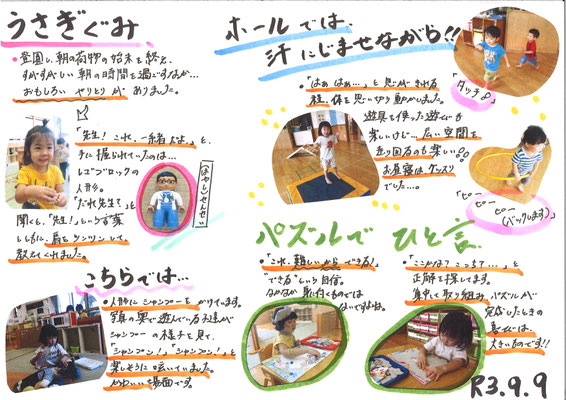 うさぎぐみ
・登園し、朝の荷物の始末を終え、
すがすがしい朝の時間を過ごすなか…
おもしろい やりとりが ありました。
「先生！これ、一緒だよ。」と、
手に握られていたのは…
レゴブロックの
人形。
「だれ先生？」と
聞くと、「先生！」という言葉
とともに、肩をツンツンして、
教えてくれました。
(はやし)せんせい
こちらでは…
・人形にシャンプーをかけています。
写真の奥で遊んでいる子達が
シャンプーの様子を見て、
「シャンプー！」「シャンプー！」と
楽しそうに呟いていました。
かわいい場面です。
ホールでは、
汗にじませながら!!
・「はぁ はぁ…」と息がきれる
程、体を思い切り動かしました。
遊具を使った遊びも
楽しいけど… 広い空間を
走り回るのも楽しい!!
お昼寝はグッスリ
でした…。
「タッチ」
「ピー
ピー
ピー
(バックします)」
パズルで ひと言
・「これ、難しいからできる！」
"できる"という自信。
なかなか身内ものでは
ないですよね。
・「ここかな？こっち？…」と
正解を探してます。
集中して取り組み、パズルが
完成したときの
喜びは、
大きいものです!!
R3.9.9